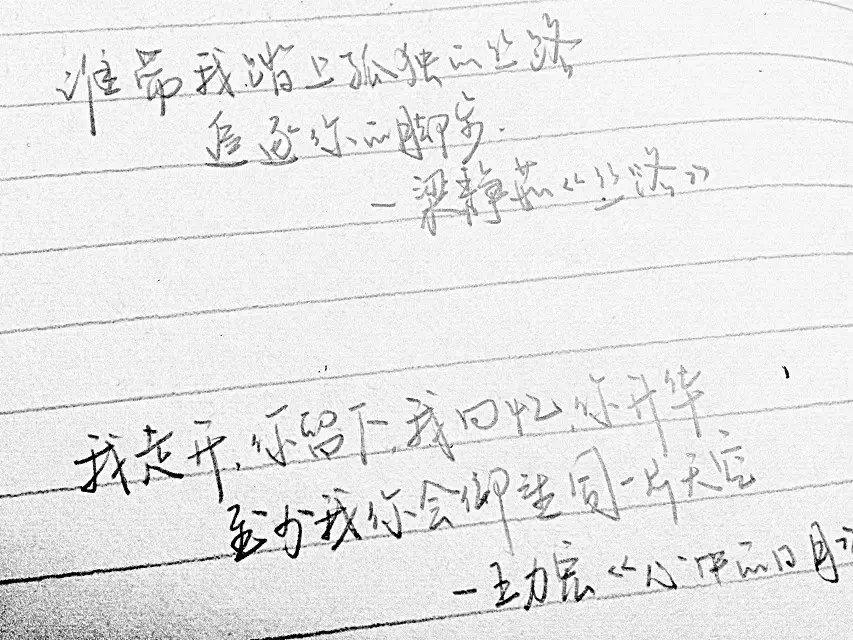 谁带我踏上孤独的丝路
追逐你的脚步.
—梁静茹《丝路》
我走开,你留下,我回忆,你升华
至少我你会仰望同一片天空
—王力宏《心中的日月》